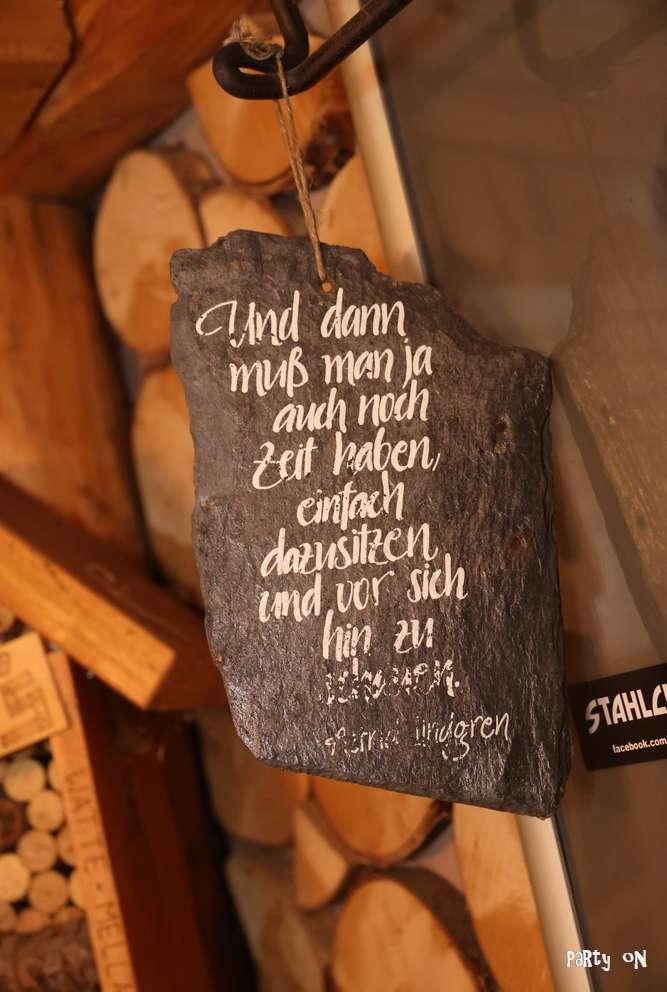 Und dann
muß man ja
auch noch
Zeit haben,
einfach
dazusitzen
und vor sich
hin zu
schauen.
lindgren
STAHLC
facebook.com
WATTE - MELLA
PaRty oN